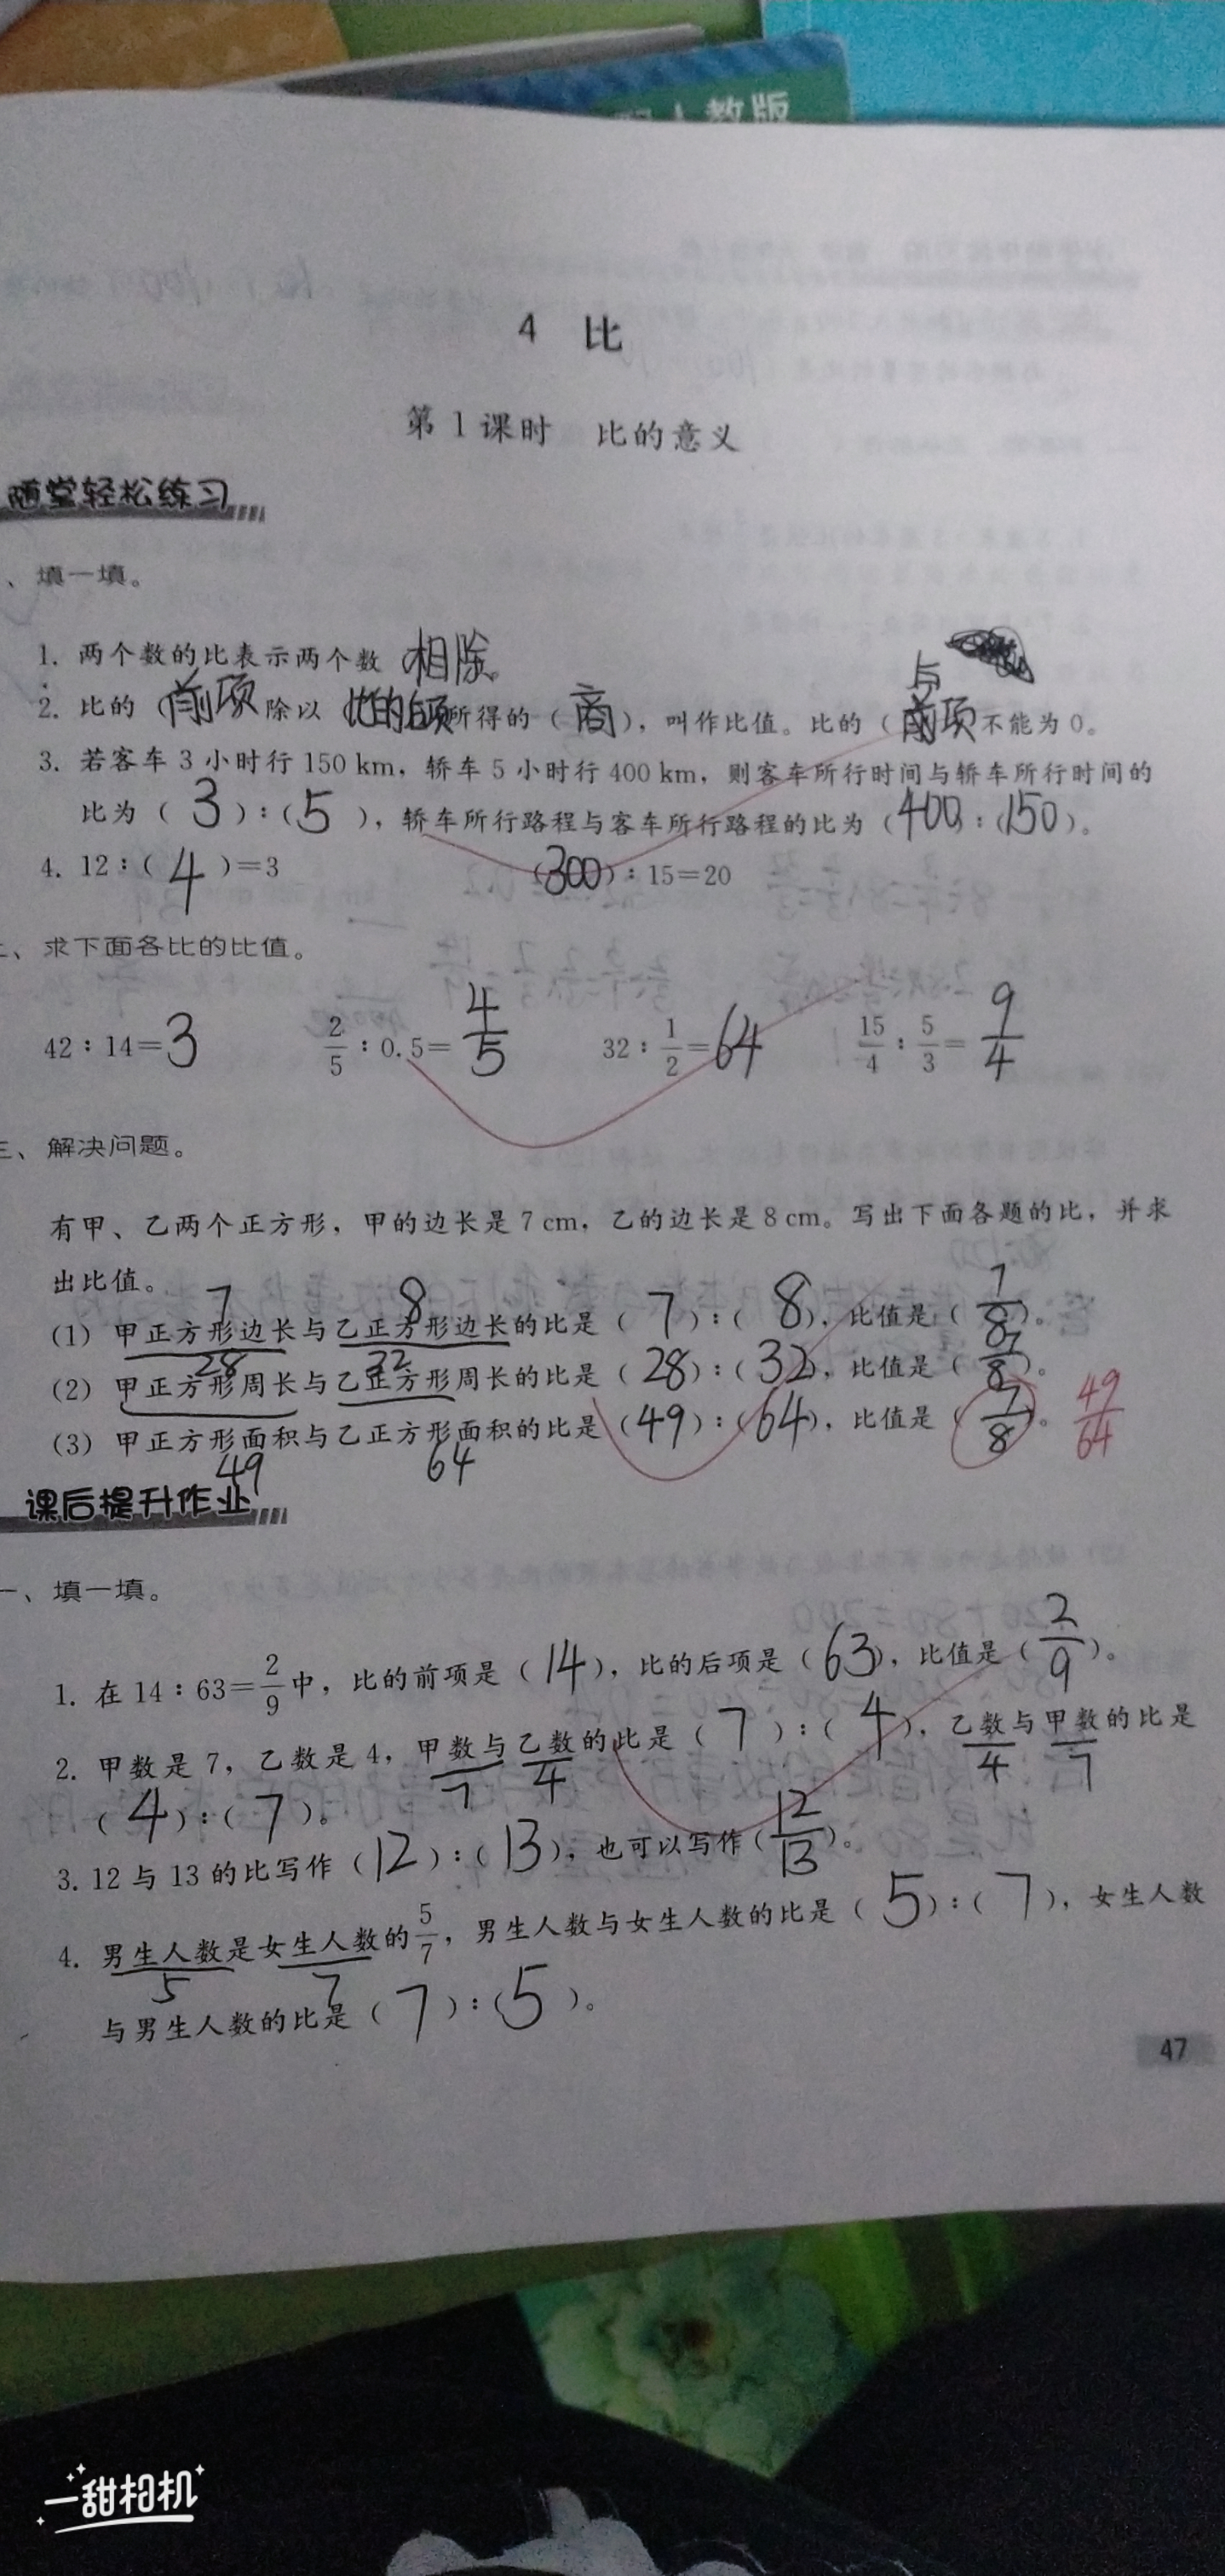 人教版
4 比
第1课时 比的意义
随堂轻松练习
、填一填。
1. 两个数的比表示两个数(相除)。
与
2. 比的(前项)除以(比的后项)所得的(商),叫作比值。比的(前项)不能为0。
3. 若客车3小时行150 km,轿车5小时行400 km,则客车所行时间与轿车所行时间的
比为(3):(5),轿车所行路程与客车所行路程的比为(400):(150)。
4. 12:(4)=3 (300):15=20
二、求下面各比的比值。
42:14=3 2/5:0.5=4/5 32:1/2=64 15/4:5/3=9/4
三、解决问题。
有甲、乙两个正方形,甲的边长是7 cm,乙的边长是8 cm。写出下面各题的比,并求
出比值。
7 8
(1) 甲正方形边长与乙正方形边长的比是(7):(8),比值是(7/8)。
28 32
(2) 甲正方形周长与乙正方形周长的比是(28):(32),比值是(7/8)。
(3) 甲正方形面积与乙正方形面积的比是(49):(64),比值是(7/8)。 49/64
49 64
课后提升作业
一、填一填。
1. 在14:63=2/9中,比的前项是(14),比的后项是(63),比值是(2/9)。
2. 甲数是7,乙数是4,甲数与乙数的比是(7):(4),乙数与甲数的比是
7 4 4 7
(4):(7)。
3. 12与13的比写作(12):(13),也可以写作(12/13)。
4. 男生人数是女生人数的5/7,男生人数与女生人数的比是(5):(7),女生人数
5 7
与男生人数的比是(7):(5)。
47
一甜相机